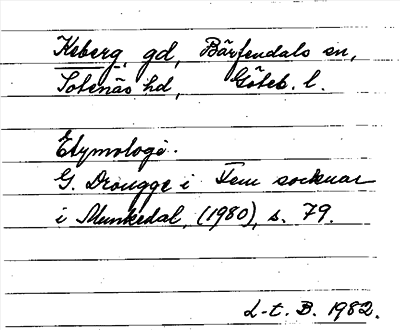 Keberg, gd, Bärfendals sn,
Sotenäs hd, Göteb. l.
Etymologi.
G. Drougge i Fem socknar
i Munkedal, (1980), s. 79.
L-t. B. 1982.